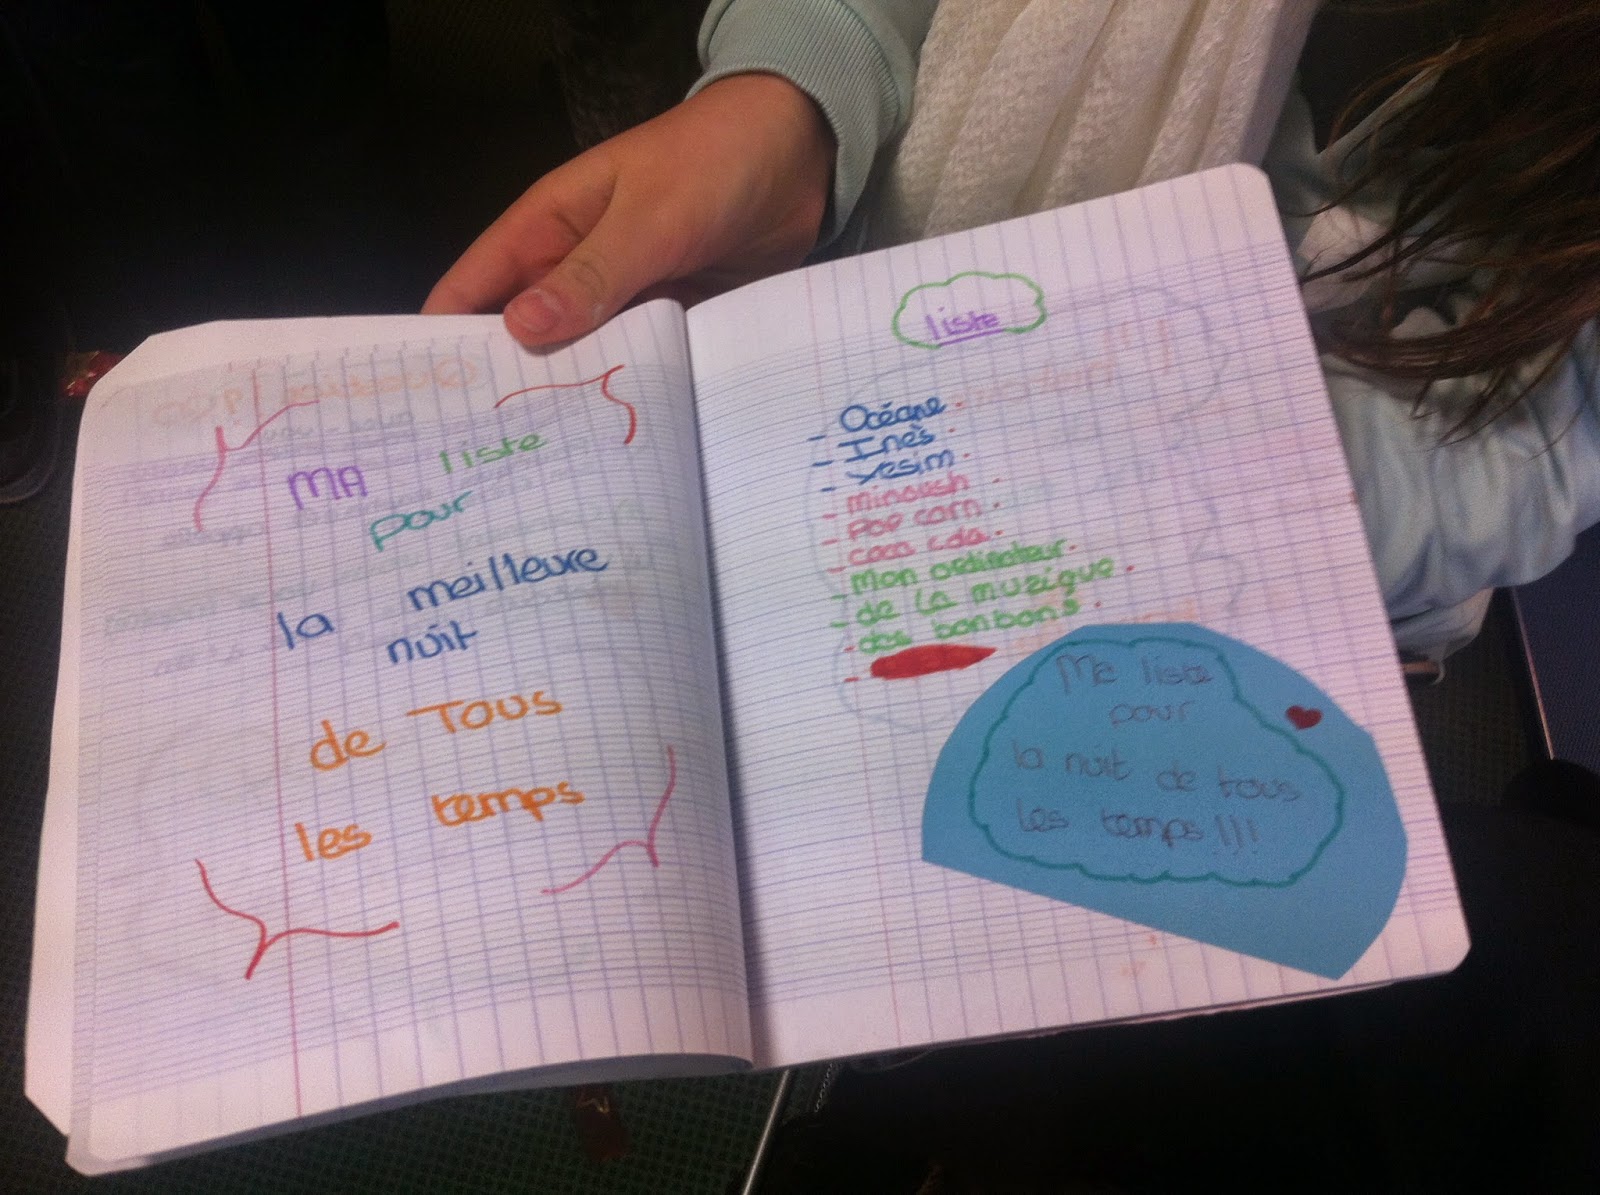 MA liste
pour
la meilleure
nuit
de TOUS
les temps
liste
- Océane.
- Inès.
- Yesim.
- Minoush.
- Pop corn.
- coca cola.
- Mon ordinateur.
- de la muzique.
- des bonbons.
-
Ma liste
pour
la nuit de tous
les temps !!!